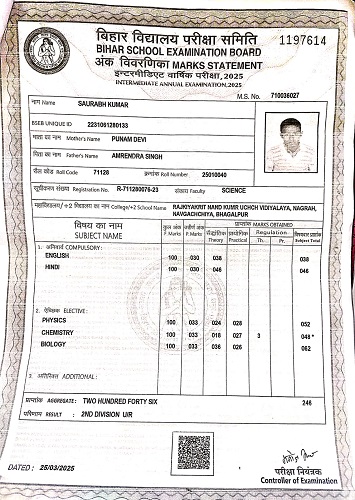 बिहार विद्यालय परीक्षा समिति
BIHAR SCHOOL EXAMINATION BOARD
1197614
अंक विवरणिका MARKS STATEMENT
इन्टरमीडिएट वार्षिक परीक्षा, 2025
INTERMEDIATE ANNUAL EXAMINATION, 2025
M.S. No. 710036027
नाम Name SAURABH KUMAR
BSEB UNIQUE ID 2231061280133
माता का नाम Mother's Name PUNAM DEVI
पिता का नाम Father's Name AMRENDRA SINGH
रौल कोड Roll Code 71128 क्रमांक Roll Number 25010040
सूचीकरण संख्या Registration No. R-711280076-23 संकाय Faculty SCIENCE
महाविद्यालय/+2 विद्यालय का नाम College/+2 School Name RAJKIYAKRIT NAND KUMR UCHCH VIDYALAYA, NAGRAH, NAVGACHCHIYA, BHAGALPUR
विषय का नाम
SUBJECT NAME
पूर्णांक F. Marks
उत्तीर्णांक P. Marks
प्राप्तांक MARKS OBTAINED
सैद्धांतिक Theory
प्रायोगिक Practical
Regulation
Th. Pr.
Subject Total
1. अनिवार्य COMPULSORY:
ENGLISH 100 030 038 038
HINDI 100 030 046 046
2. ऐच्छिक ELECTIVE:
PHYSICS 100 033 024 028 052
CHEMISTRY 100 033 018 027 3 048 *
BIOLOGY 100 033 036 026 062
3. अतिरिक्त ADDITIONAL:
प्राप्तांक AGGREGATE: TWO HUNDRED FORTY SIX 246
परिणाम RESULT : 2ND DIVISION U/R
DATED : 25/03/2025
परीक्षा नियंत्रक
Controller of Examination